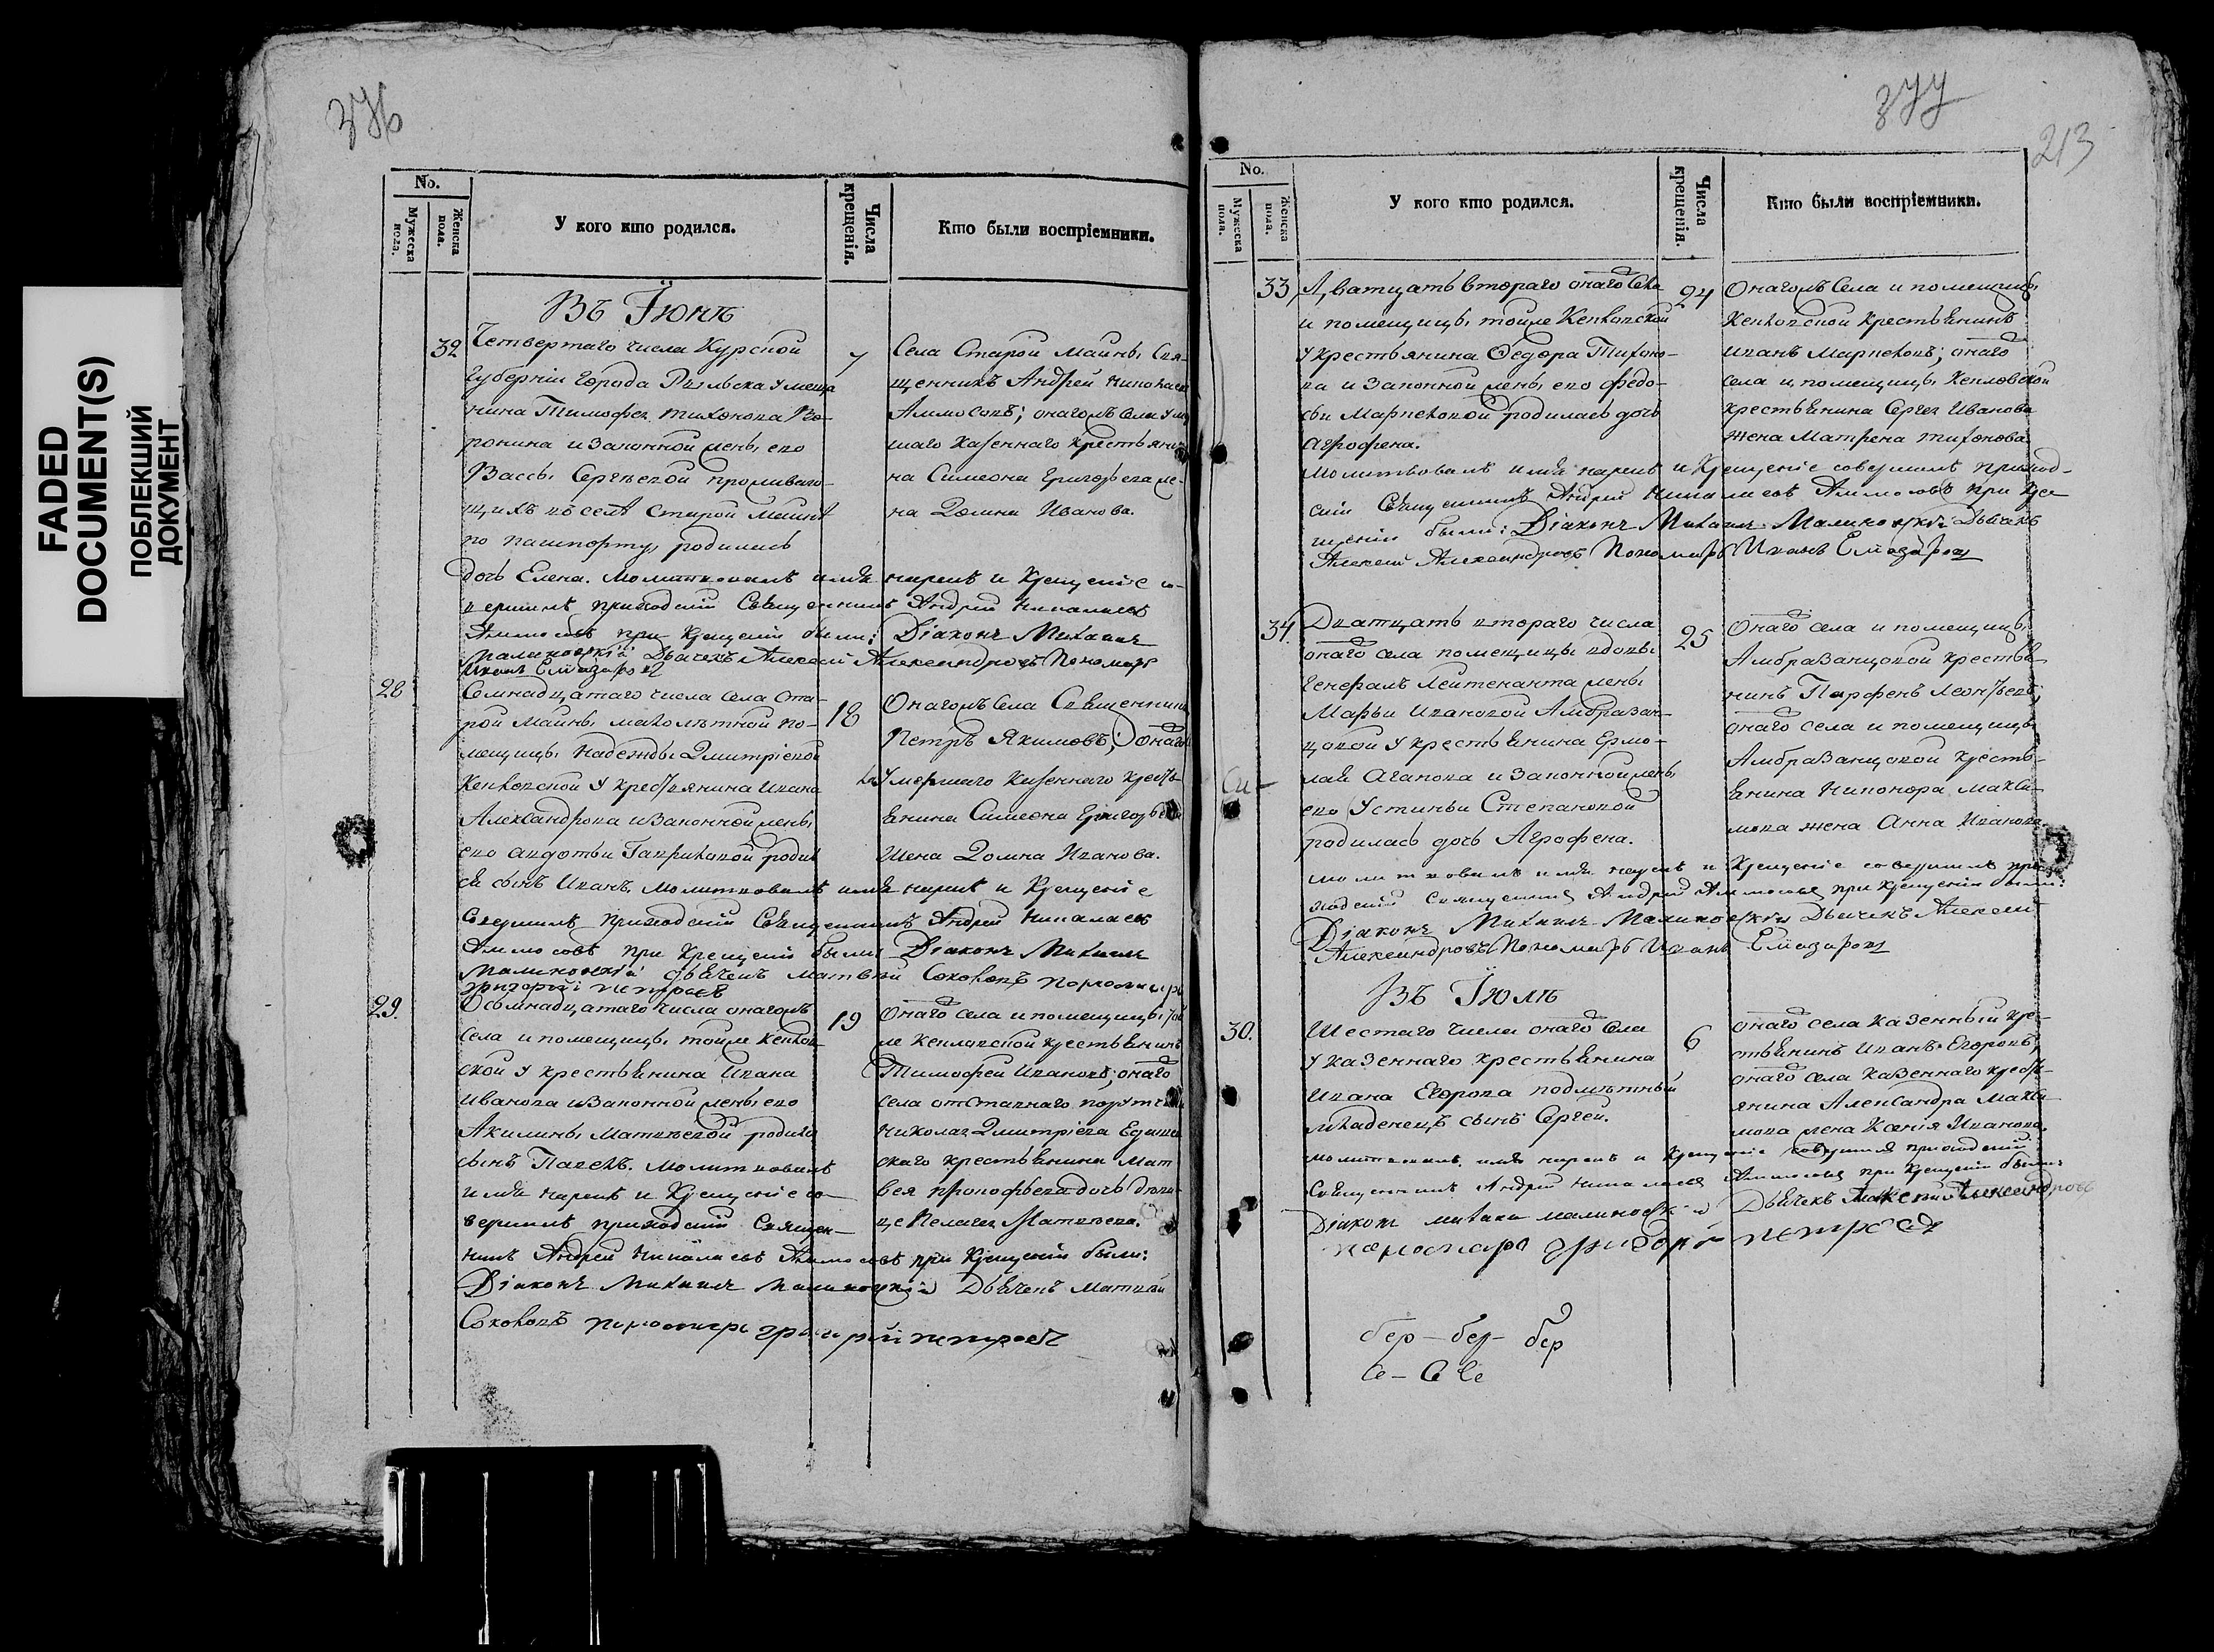 FADED
DOCUMENT(S)
ПОБЛЕКШИЙ
ДОКУМЕНТ
376
No.
Мужеска пола.
Женска пола.
У кого кто родился.
Числа крещенія.
Кто были воспріемники.
Въ Їюнѣ
32
Четвертаго числа Курской
губерніи города Рыльска у меща
нина Тимофея Тихонова Во-
ронина и законной жены его
Вассы Сергѣевой проживаю-
щихъ въ селѣ Старой Маинѣ
по пашпорту, родилась
дочь Елена. Молитвовалъ имя нарекъ и крещеніе со-
вершилъ приходскій Священникъ Андрей Николаевъ
Аммосовъ при крещеніи были: Діаконъ Михаилъ
Малиновскій Дьячекъ Алексей Александровъ Пономарь
Иванъ Елиазаровъ
7
Села Старой Маины Свя-
щенникъ Андрей Николаевъ
Аммосовъ; онагожъ села ум
шаго казеннаго крестьяни
на Симеона Григорьева же-
на Домна Иванова.
28
Семнадцатаго числа села Ста-
рой Маины малолѣтной по-
мещицы Надежды Дмитріевой
у крестьянина Ивана
Александрова и законной жены
его Авдотьи Гавриловой родил
ся сынъ Иванъ, молитвовалъ имя нарекъ и крещеніе
совершилъ приходскій Священникъ Андрей Николаевъ
Аммосовъ при крещеніи были Діаконъ Михаилъ
Малиновскій дьячекъ Матвей Соколовъ пономарь
григорій петровъ
18
Онагожъ села Священник
Петръ Якимовъ; онагож
умершаго казеннаго кресть-
янина Симеона Григорьева
жена Домна Иванова.
29.
Осьмнадцатаго числа онагожъ
села и помещицы тойже
ской у крестьянина Ивана
Иванова и законной жены его
Акилины Матвѣевой родился
сынъ Павелъ. молитвовалъ
имя нарекъ и крещеніе со-
вершилъ приходскій Священ-
никъ Андрей Николаевъ Аммосовъ при крещеніи были:
Діаконъ Михаилъ Малиновскій Дьячекъ Матвей
Соколовъ пономарь григорій петровъ
19
Онаго села и помещицы той
же крестьянинъ
Тимофей Ивановъ; онаго
села отставнаго порутчика
Николая Дмитріева
скаго крестьянина Мат
вея Прокофьева дочь
Пелагея Матвѣева.
377
213
No.
Мужеска пола.
Женска пола.
У кого кто родился.
Числа крещенія.
Кто были воспріемники.
33
Дватцать втораго онаго села
и помещицы тойже
у крестьянина Федора Тихоно-
ва и законной жены его Федо-
сьи Марпеловой родилась дочь
Агрофена.
молитвовалъ имя нарекъ и крещеніе совершилъ приход-
скій Священникъ Андрей Николаевъ Аммосовъ при кре
щеніи были: Діаконъ Михаилъ Малиновскій Дьячекъ
Алексей Александровъ Пономарь Иванъ Елиазаровъ
24
Онагожъ села и помещицы
крестьянинъ
Иванъ Марпеловъ; онаго
села и помещицы
крестьянина Сергея Иванова
жена Матрена Тихонова.
34.
Дватцать втораго числа
онаго села помещицы вдовы
Генералъ Лейтенанта жены
Марьи Ивановой Амбразан-
цовой у крестьянина Ермо-
лая Агапова и законной жены
его Устиньи Степановой
родилась дочь Агрофена.
молитвовалъ имя нарекъ и крещеніе совершилъ при
ходскій священникъ Андрей Аммосовъ при крещеніи были:
Діаконъ Михаилъ Малиновскій Дьячекъ Алексей
Александровъ Пономарь Иванъ Елиазаровъ
25
Онаго села и помещицы
Амбразанцовой крестья-
нинъ Парфенъ Леонтьевъ;
онаго села и помещицы
Амбразанцовой кресть-
янина Никонора Макси-
мова жена Анна Иванова
Въ Їюлѣ
30.
Шестаго числа онаго села
у казеннаго крестьянина
Ивана Егорова
младенецъ сынъ Сергей.
молитвовалъ имя нарекъ и крещеніе совершилъ приходскій
Священникъ Андрей Николаевъ Аммосовъ при крещеніи были:
Діаконъ Михаилъ Малиновскій Дьячекъ Алексей Александровъ
пономарь григорій петровъ
6
Онаго села казенный кре-
стьянинъ Иванъ Егоровъ;
онаго села казеннаго кресть-
янина Александра Макси
мова жена Ксенія Иванова.
бер - бер - бер
Се - Се Се